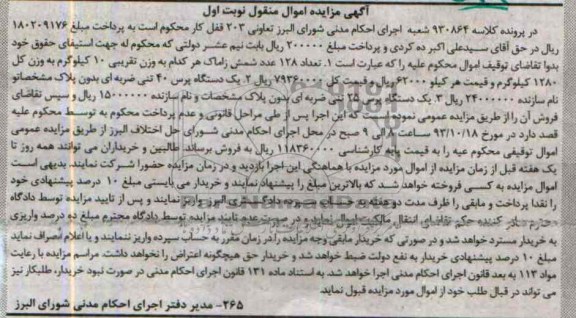 آگهی مزایده اموال منقول نوبت اول
در پرونده کلاسه ۹۳۰۸۶۴ شعبه اجرای احکام مدنی شورای البرز تعاونی ۲۰۳ قفل کار محکوم است به پرداخت مبلغ ۱۸۰۲۰۹۱۷۶
ریال در حق آقای سیدعلی اکبر ده کردی و پرداخت مبلغ ۲۰۰۰۰۰ ریال بابت نیم عشر دولتی که محکوم له جهت استیفای حقوق خود
بدوا تقاضای توقیف اموال محکوم علیه را که عبارت است ۱. تعداد ۱۲۸ عدد شمش زاماک هر کدام به وزن تقریبی ۱۰ کیلوگرم به وزن کل
۱۲۸۰ کیلوگرم و قیمت هر کیلو ۶۲۰۰۰ ریال و قیمت کل ۷۹۳۶۰۰۰۰ ریال ۲. یک دستگاه پرس ۴۰ تنی ضربه ای بدون پلاک مشخصاتو
نام سازنده ۲۴۰۰۰۰۰۰ ریال ۳. یک دستگاه پرس تنی ضربه ای بدون پلاک مشخصات و نام سازنده ۱۵۰۰۰۰۰۰ ریال و سپس تقاضای
فروش آن را از طریق مزایده عمومی نموده است که این اجرا پس از طی مراحل قانونی و عدم پرداخت محکوم به توسط محکوم علیه
قصد دارد در مورخ ۹۳/۱۰/۱۸ ساعت ۸ الی ۹ صبح در محل اجرای احکام مدنی شورای حل اختلاف البرز از طریق مزایده عمومی
اموال توقیفی محکوم عیه را به قیمت پایه کارشناسی ۱۱۸۳۶۰۰۰۰ ریال به فروش برساند. طالبین و خریداران می توانند همه روز تا
یک هفته قبل از زمان مزایده از اموال مورد مزایده با هماهنگی این اجرا بازدید و در زمان مزایده حضورا شرکت نمایند. بدیهی است
اموال مزایده به کسی فروخته خواهد شد که بالاترین مبلغ را پیشنهاد نمایند و خریدار می بایستی مبلغ ۱۰ درصد پیشنهادی خود
را نقدا پرداخت و مابقی را ظرف مدت دو هفته به حساب سپرده دادگستری البرز واریز نمایند و پس از تایید مزایده توسط دادگاه
محترم صادر کننده حکم تقاضای انتقال مالکیت اموال نماید و در صورت عدم تایید مزایده توسط دادگاه محترم مبلغ ده درصد واریزی
به خریدار مسترد خواهد شد و در صورتی که خریدار مابقی وجه مزایده را در زمان مقرر به حساب سپرده واریز ننمایند و یا اعلام انصراف نماید
مبلغ ۱۰ درصد پیشنهادی خریدار به نفع دولت ضبط خواهد شد و خریدار حق هیچگونه اعتراض را نخواهد داشت. مراسم مزایده با رعایت
مواد ۱۱۳ به بعد قانون اجرای احکام مدنی اجرا خواهد شد. به استناد ماده ۱۳۱ قانون اجرای احکام مدنی در صورت نبود خریدار، طلبکار نیز
می تواند در قبال طلب خود از اموال مورد مزایده قبول نماید.
۲۶۵- مدیر دفتر اجرای احکام مدنی شورای البرز